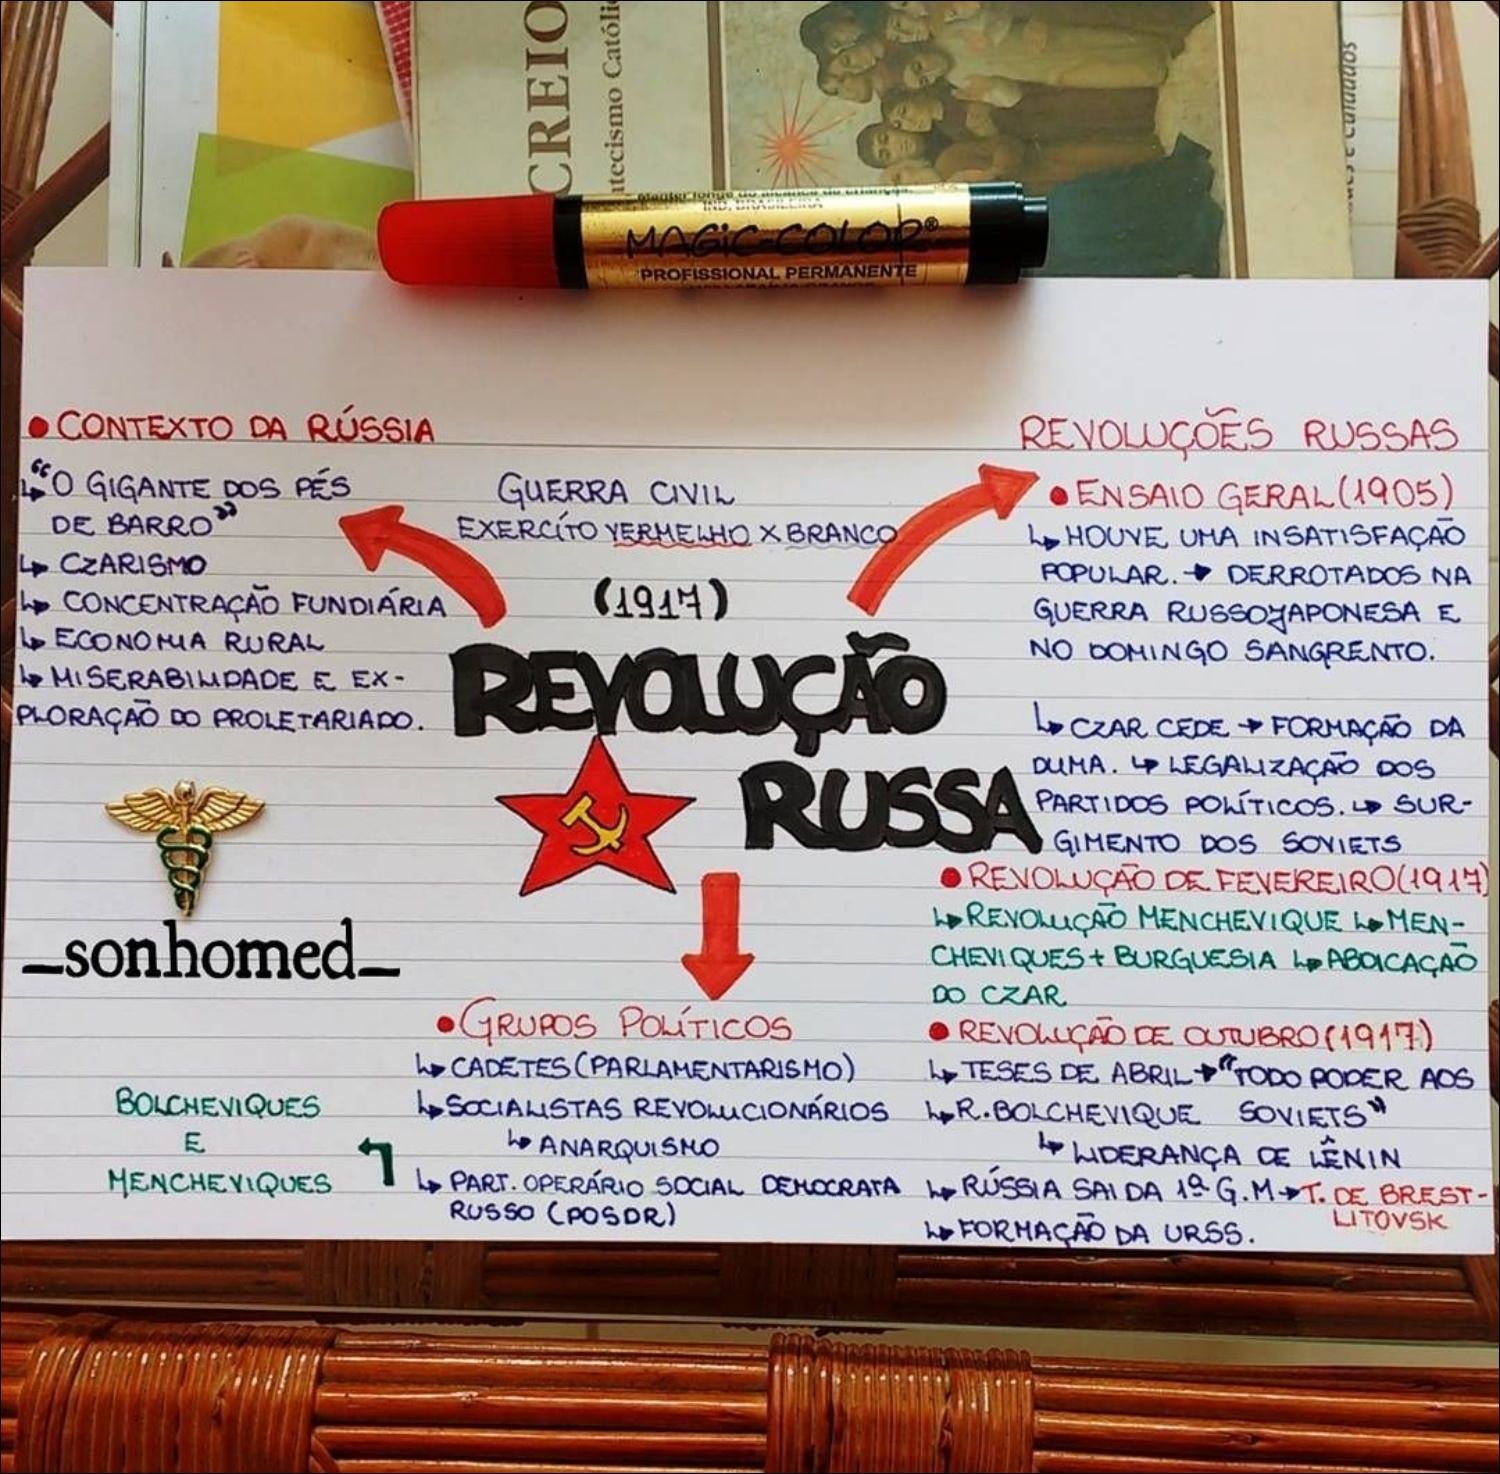 CREIO
tecismo Católi
IND. BRASILEIRA
MAGIC-COLOR®
PROFISSIONAL PERMANENTE
• CONTEXTO DA RÚSSIA
↳ "O GIGANTE DOS PÉS
DE BARRO"
↳ CZARISMO
↳ CONCENTRAÇÃO FUNDIÁRIA
↳ ECONOMIA RURAL
↳ MISERABILIDADE E EX-
PLORAÇÃO DO PROLETARIADO.
GUERRA CIVIL
EXERCÍTO VERMELHO X BRANCO
(1917)
REVOLUÇÃO
RUSSA
_sonhomed_
REVOLUÇÕES RUSSAS
• ENSAIO GERAL (1905)
↳ HOUVE UMA INSATISFAÇÃO
POPULAR. → DERROTADOS NA
GUERRA RUSSOJAPONESA E
NO DOMINGO SANGRENTO.
↳ CZAR CEDE → FORMAÇÃO DA
DUMA. ↳ LEGALIZAÇÃO DOS
PARTIDOS POLÍTICOS. ↳ SUR-
GIMENTO DOS SOVIETS
• REVOLUÇÃO DE FEVEREIRO (1917)
↳ REVOLUÇÃO MENCHEVIQUE ↳ MEN-
CHEVIQUES + BURGUESIA ↳ ABDICAÇÃO
DO CZAR
• REVOLUÇÃO DE OUTUBRO (1917)
↳ TESES DE ABRIL → "TODO PODER AOS
↳ R. BOLCHEVIQUE SOVIETS"
↳ LIDERANÇA DE LÊNIN
↳ RÚSSIA SAI DA 1ª G.M → T. DE BREST-
LITOVSK
↳ FORMAÇÃO DA URSS.
• GRUPOS POLÍTICOS
↳ CADETES (PARLAMENTARISMO)
↳ SOCIALISTAS REVOLUCIONÁRIOS
↳ ANARQUISMO
↳ PART. OPERÁRIO SOCIAL DEMOCRATA
RUSSO (POSDR)
BOLCHEVIQUES
E
MENCHEVIQUES